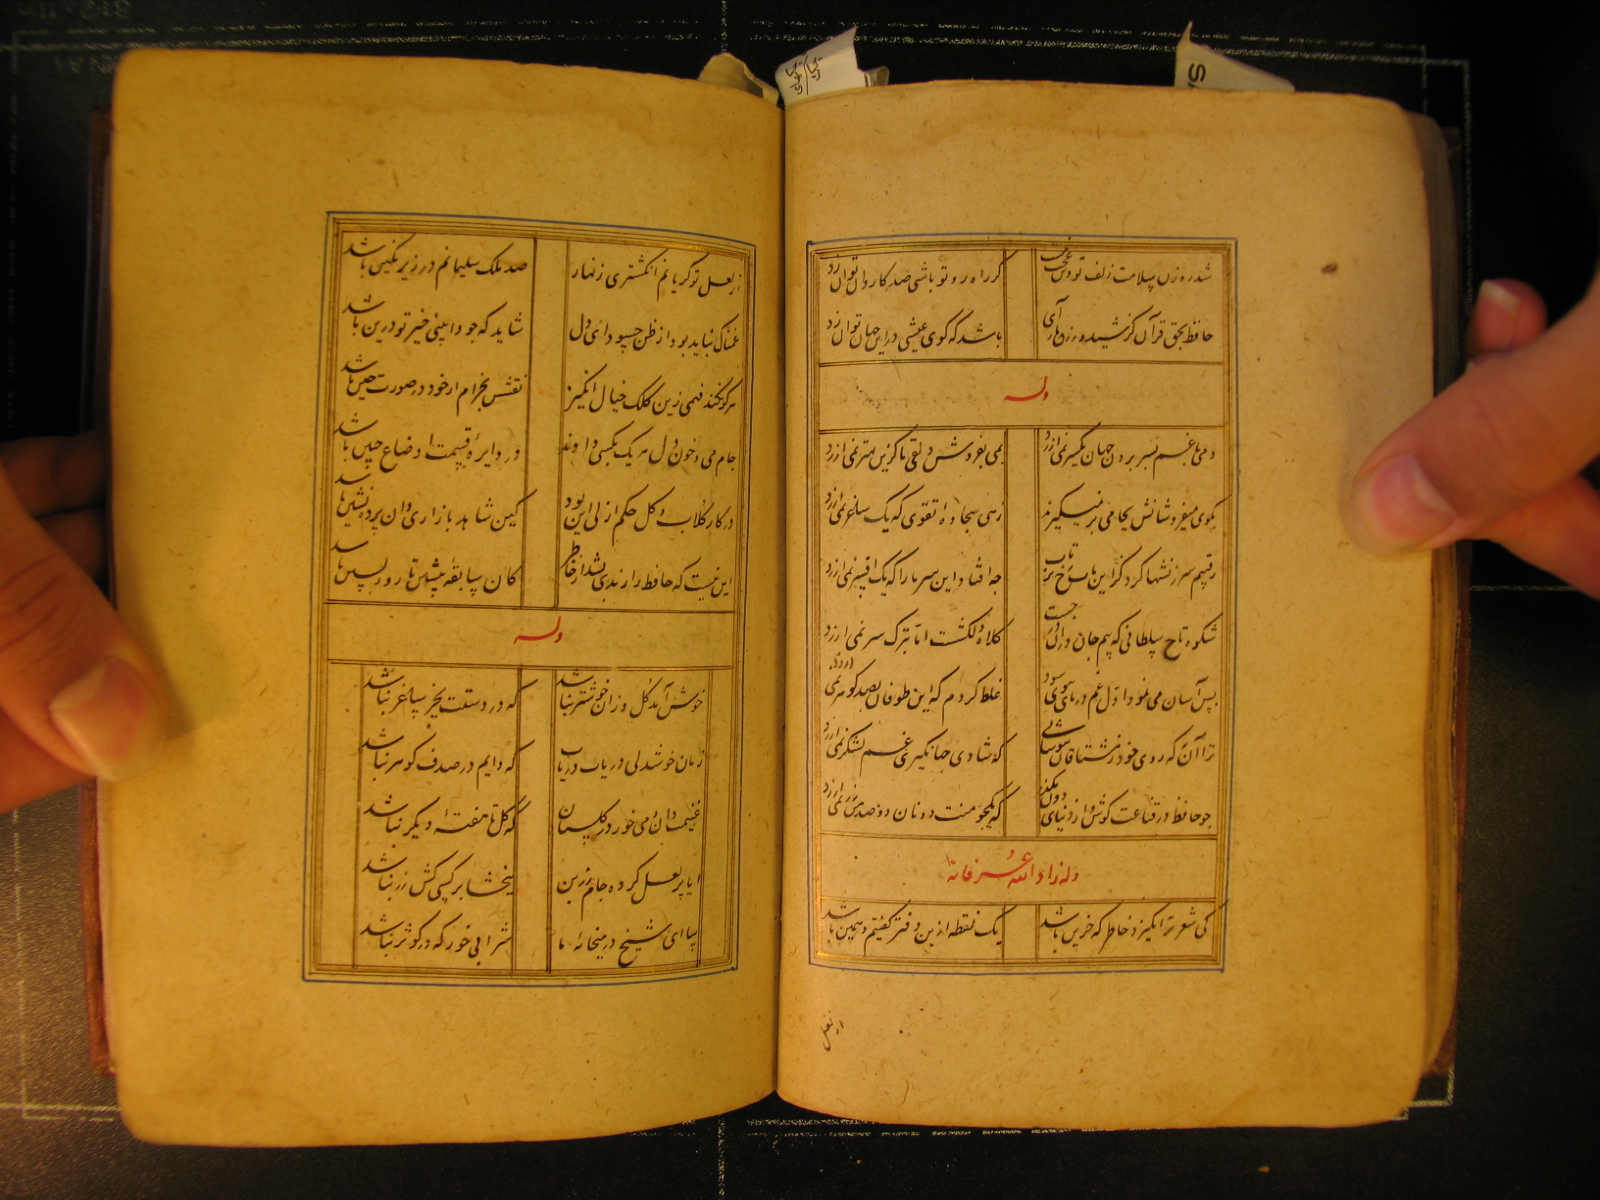 شد رهزن سلامت زلف تو وین عجب نیست گر راه زن تو باشی صد کاروان توان زد
حافظ بحق قرآن کز شید و زرق بازآی باشد که گوی عیشی در این جهان توان زد
وله
دمی با غم بسر بردن جهان یکسر نمی ارزد بمی بفروش دلق ما کزین بهتر نمی ارزد
بکوی میفروشانش بجامی بر نمیگیرند زهی سجاده تقوی که یک ساغر نمی ارزد
رقیبم سرزنشها کرد کز این باب رخ برتاب چه افتاد این سر ما را که یک افسر نمی ارزد
شکوه تاج سلطانی که بیم جان درو درجست کلاه دلکشت اما بترک سر نمی ارزد
بس آسان می نمود اول غم دریا ببوی سود غلط کردم که این طوفان بصد گوهر نمی ارزد
ترا آن به که روی خود ز مشتاقان بپوشانی که شادی جهانگیری غم لشکر نمی ارزد
چو حافظ در قناعت کوش و از دنیای دون بگذر که یکجو منت دونان دو صد من زر نمی ارزد
وله زاد الله عرفانه
کی شعر تر انگیزد خاطر که حزین باشد یک نقطه ازین دفتر گفتیم و همین باشد
از لعل
از لعل تو گر یابم انگشتری زنهار صد ملک سلیمانم در زیر نگین باشد
غمناک نباید بود از طعن حسود ای دل شاید که چو وابینی خیر تو درین باشد
هر کو نکند فهمی زین کلک خیال انگیز نقشش بخرم ار خود صورتگر چین باشد
جام می و خون دل هر یک بکسی دادند در دایره قسمت اوضاع چنین باشد
در کار گلاب و گل حکم ازلی این بود کین شاهد بازاری وان پرده نشین باشد
این نیست که حافظ را رندی بشد از خاطر کان سابقه پیشین تا روز پسین باشد
وله
خوش آمد گل و زان خوشتر نباشد که در دستت بجز ساغر نباشد
زمان خوشدلی دریاب دریاب که دایم در صدف گوهر نباشد
غنیمت دان و می خور در گلستان که گل تا هفته دیگر نباشد
ایا پر لعل کرده جام زرین ببخشا بر کسی کش زر نباشد
بیا ای شیخ در میخانه ما شرابی خور که در کوثر نباشد